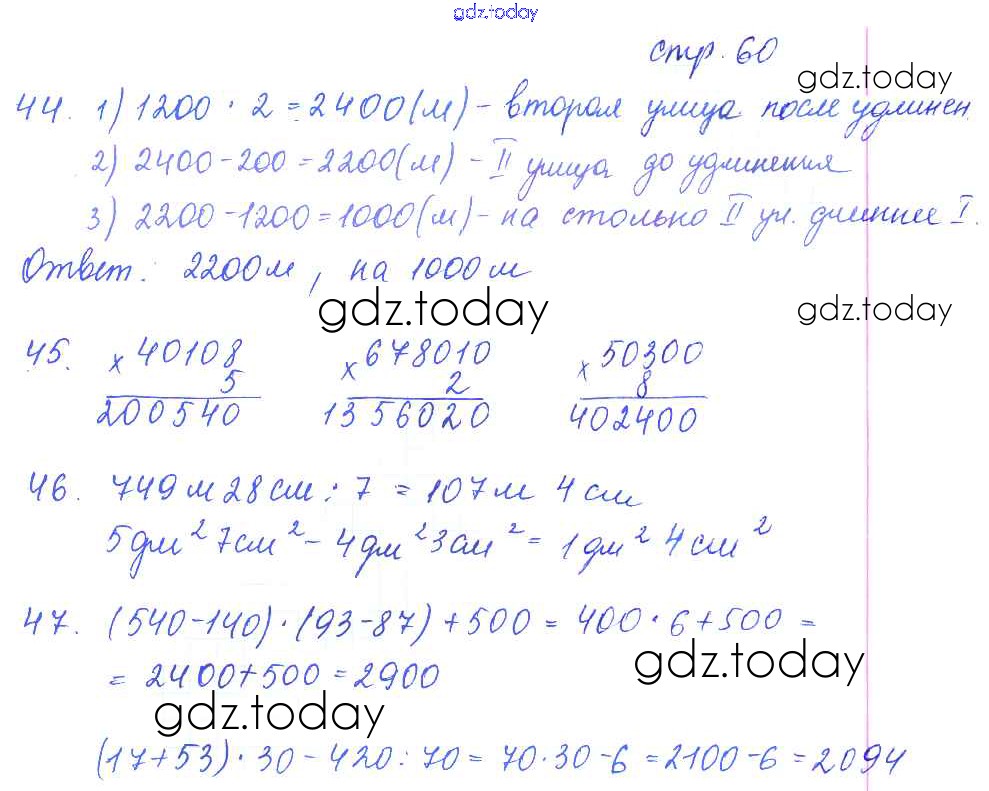 gdz.today
стр. 60
gdz.today
44. 1) 1200 · 2 = 2400(м) - вторая улица после удлинен.
2) 2400 - 200 = 2200(м) - II улица до удлинения
3) 2200 - 1200 = 1000(м) - на столько II ул. длиннее I.
Ответ: 2200м, на 1000м
gdz.today gdz.today
45. × 40108 × 678010 × 50300
5 2 8
200540 1356020 402400
46. 749м 28см : 7 = 107м 4см
5дм² 7см² - 4дм² 3см² = 1дм² 4см²
47. (540-140) · (93-87) + 500 = 400 · 6 + 500 =
gdz.today
= 2400 + 500 = 2900
gdz.today
(17+53) · 30 - 420 : 70 = 70 · 30 - 6 = 2100 - 6 = 2094